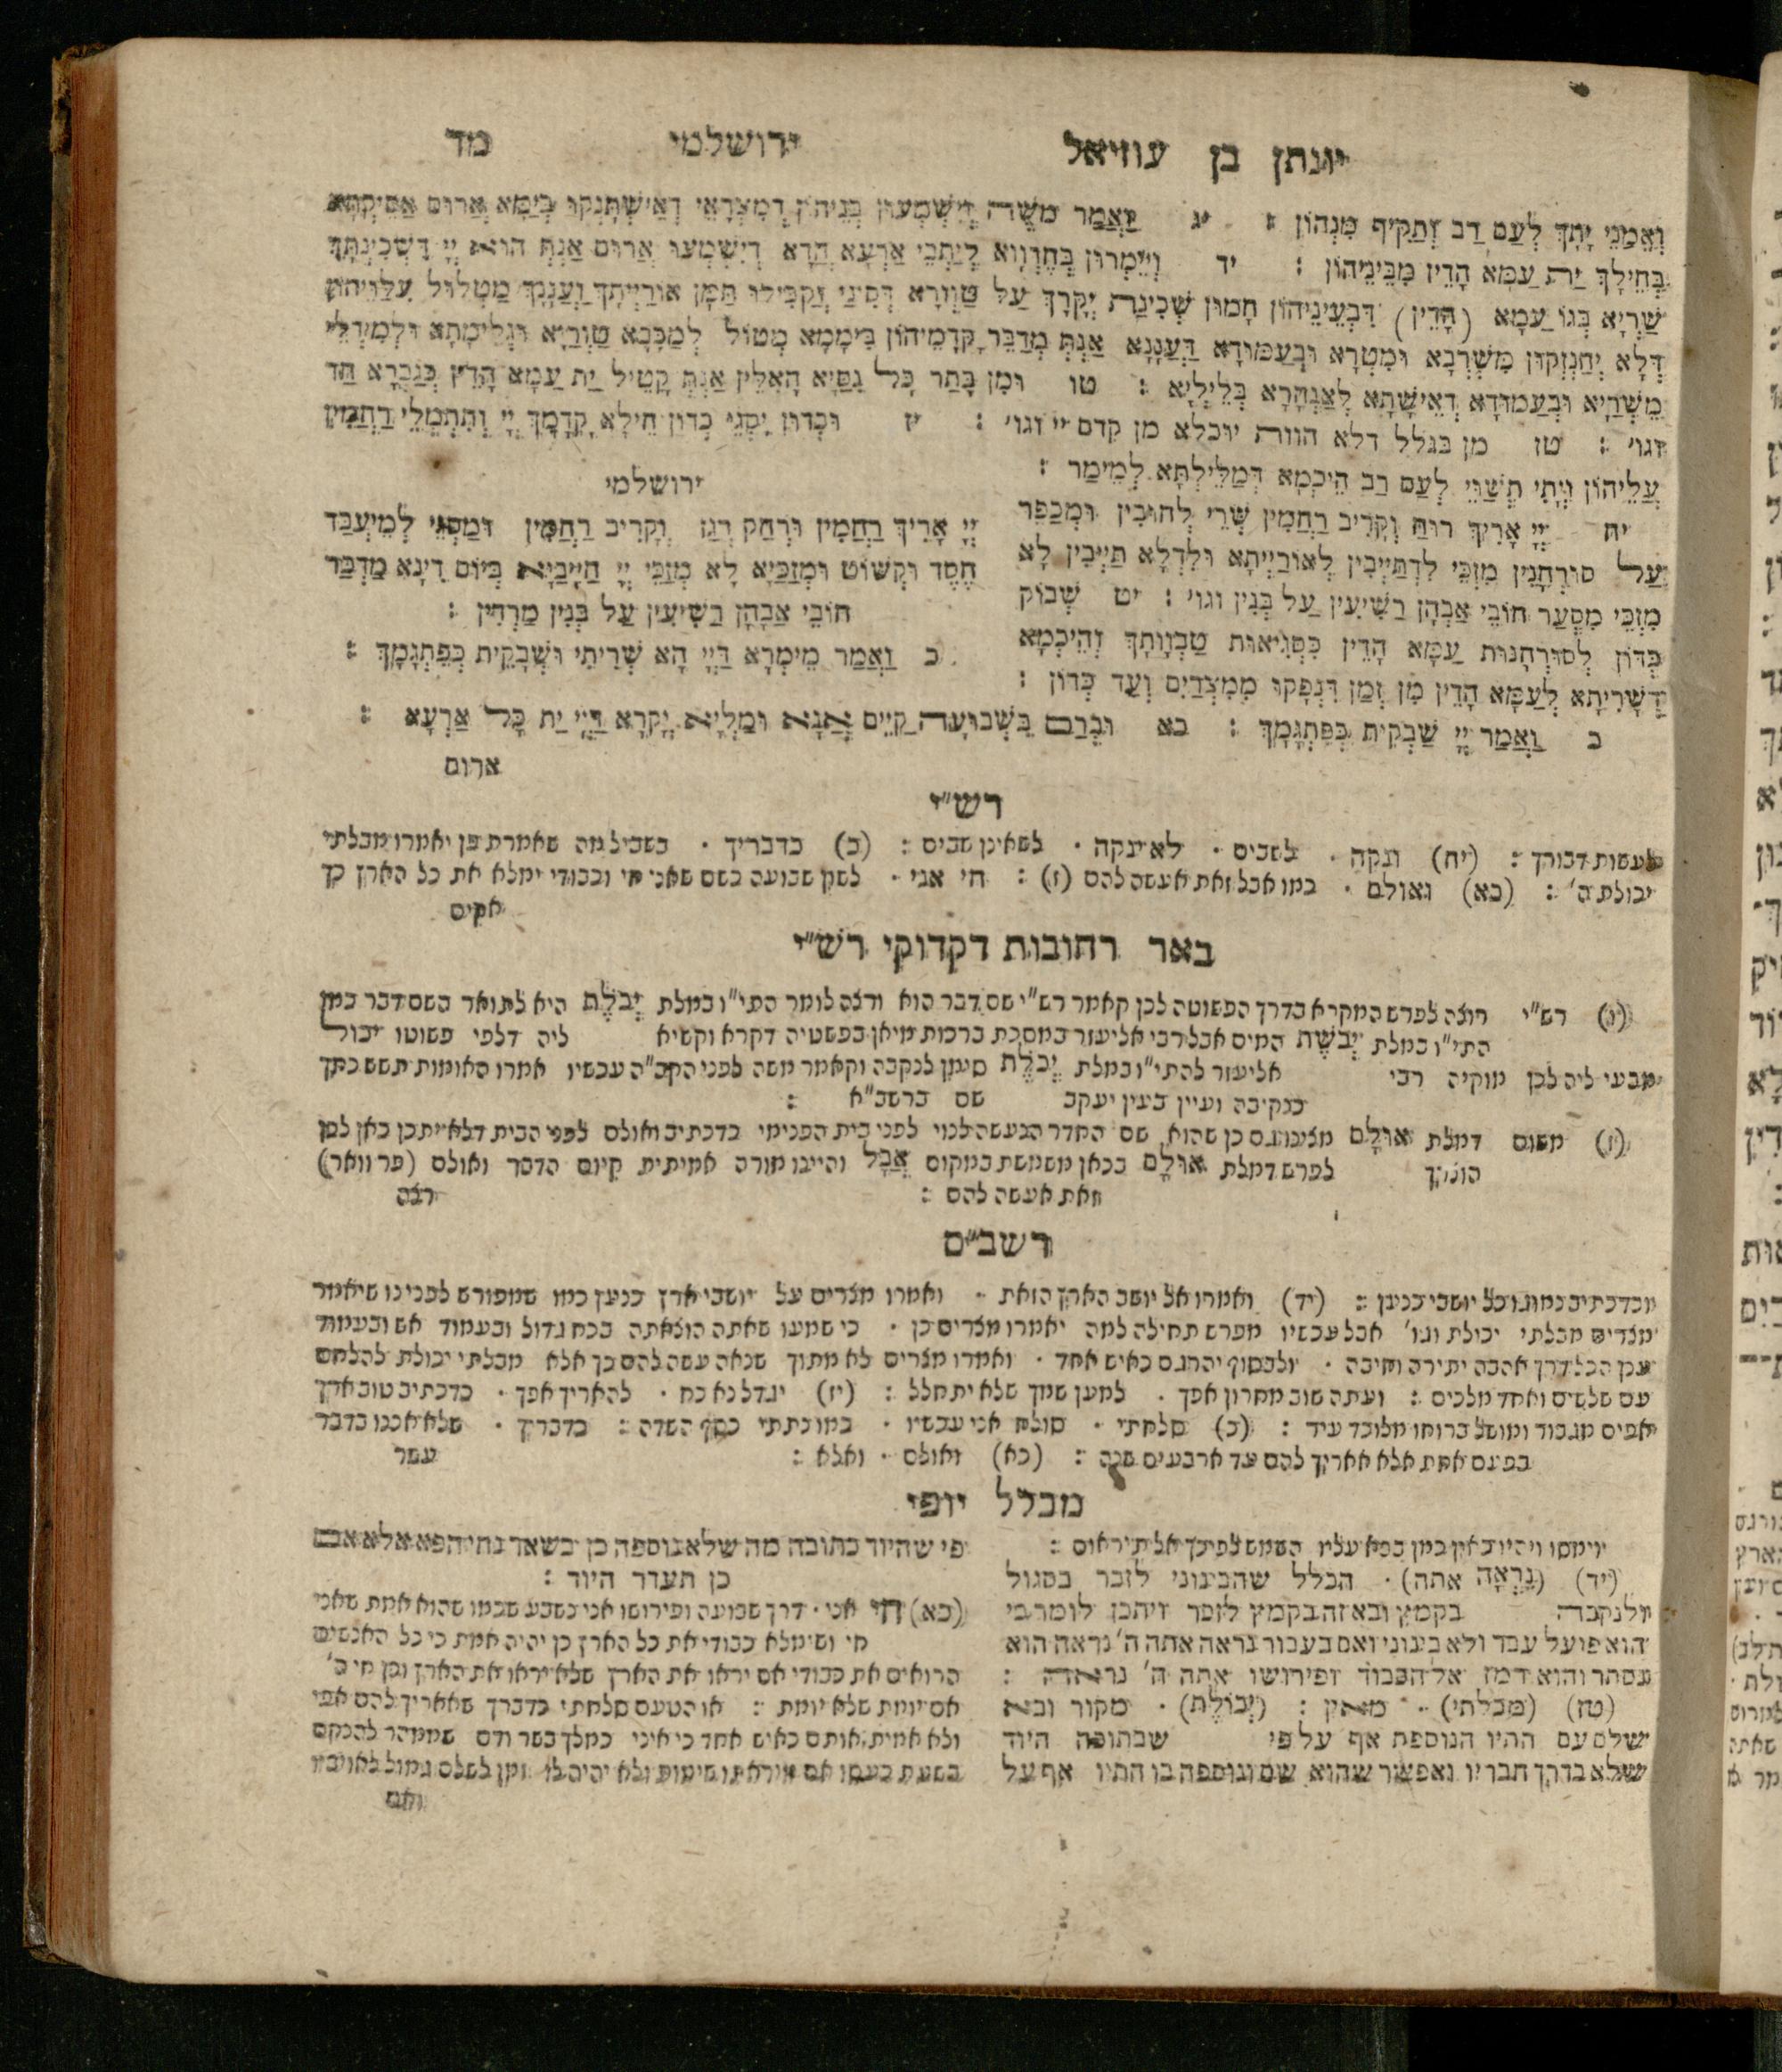 יונתן בן עוזיאל ירושלמי מד
וְאֶמַנֵי יָתָךְ לְעַם רַב וְתַקִיף מִנְהוֹן : יג וַאֲמַר משֶׁה וְיִשְׁמְעוּן בְּנֵיהוֹן דְמִצְרָאֵי דְאִישְׁתְּנְקוּ בְּיַמָא אֲרוּם אַסִיקְתָּא
בְּחֵילָךְ יַת עַמָא הָדֵין מִבֵּינֵיהוֹן : יד וְיֵימְרוּן בְּחֶדְוָוא לְיַתְבֵי אַרְעָא הֲדָא דְיִשְׁמְעוּ אֲרוּם אַנְתְּ הוּא יְיָ דְשְׁכִינְתָּךְ
שַׁרְיָא בְּגוֹ עַמָא (הָדֵין) דִבְעֵינֵיהוֹן חָמוּן שְׁכִינַת יְקָרָךְ עַל טַוְורָא דְסִינַי וְקַבִּילוּ תַּמָן אוֹרַיְיתָךְ וַעֲנָנָךְ מַטְלוּל עִלַּוֵיהוֹן
דְלָא יְהַנְזְקוּן מִשְׁרְבָא וּמִטְרָא וּבְעַמוּדָא דַעֲנָנָא אַנְתְּ מְדַבֵּר קֳדָמֵיהוֹן בִּימָמָא מְטוֹל לְמַכְּכָא טַוְורַיָא וְגַלִימָתָא וּלְמִידְלֵי
מֵשְׁרַיָא וּבְעַמוּדָא דְאֵישָׁתָא לְאַנְהָרָא בְּלֵילְיָא : טו וּמִן בָּתַר כָּל נִסַיָא הָאִלֵין אַנְתְּ קָטֵיל יַת עַמָא הָדֵין כְּגַבְרָא חַד
וגו׳ : טז מן בגלל דלא הוות יוכלא מן קדם יי וגו׳ : יז וּכְדוּן יִסְגֵי כְּדוֹן חֵילָא קֳדָמָךְ יְיָ וְתִתְמְלֵי רַחֲמִין
עֲלֵיהוֹן וְיָתִי תְּשַׁוֵי לְעַם רַב הֵיכְמָא דְמַלֵילְתָּא לְמֵימַר :
יח יְיָ אָרִיךְ רוּחַ וְקָרִיב רַחֲמִין שְׁרֵי לְחוֹבִין וּמְכַפֵּר
עַל סוּרְחָנִין מְזַכֵּי לִדְתַיְיבִין לְאוֹרַיְיתָא וּלִדְלָא תַיְיבִין לָא
מְזַכֵּי מִסְעַר חוֹבֵי אֲבָהָן רַשִׁיעִין עַל בְּנִין וגו׳ : יט שְׁבוֹק
כְּדוֹן לְסוּרְחָנוּת עַמָא הָדֵין כִּסְגִיאוּת טַבְוָותָךְ וְהֵיכְמָא
דְשָׁרִיתָא לְעַמָא הָדֵין מִן זְמַן דִנְפָקוּ מִמִצְרַיִם וְעַד כְּדוֹן :
ירושלמי
יְיָ אָרִיךְ רַחֲמִין וּרְחַק רְגַז וְקָרִיב רַחֲמִין וּמַסְגֵי לְמֵיעְבַּד
חֶסֶד וּקְשׁוֹט וּמְזַכֵּיָא לָא מְזַכֵּי יְיָ חַיָיבַיָא בְּיוֹם דִינָא מַדְכַּר
חוֹבֵי אֲבָהָן רַשִׁיעִין עַל בְּנִין מַרְדִין :
כ וַאֲמַר מֵימְרָא דַיְיָ הָא שְׁרֵיתִי וּשְׁבָקִית כְּפִתְגָמָךְ :
כ וַאֲמַר יְיָ שַׁבְקִית כְּפִתְגָמָךְ : כא וּבְרַם בִּשְׁבוּעָה קַיֵים אֲנָא וּמַלְיָא יְקָרָא דַיְיָ יַת כָּל אַרְעָא :
ארום
רש״י
לעשות דבורך : (יח) ונקה . לשבים . לא ינקה . לשאינן שבים : (כ) כדבריך . בשביל מה שאמרת פן יאמרו מבלתי
יכולת ה׳ : (כא) ואולם . כמו אבל זאת אעשה להם (ז) : חי אני . לשון שבועה כשם שאני חי וכבודי ימלא את כל הארץ כך
אקים
באר רחובות דקדוקי רש״י
(ו) רש״י רוצה לפרש המקרא בדרך הפשוטה לכן קאמר רש״י שם דבר הוא ורצה לומר התי״ו במלת יְבֹלֶת היא לתואר השם דבר כמו
התי״ו במלת יַבֹּשֶׁת המים אבל רבי אליעזר במסכת ברכות מיאן בפשטיה דקרא וקשיא ליה דלפי פשוטו יכול
מבעי ליה לכן מוקיה רבי אליעזר להתי״ו במלת יְכֹלֶת סימן לנקבה וקאמר משה לפני הקב״ה עכשיו אמרו האומות תשש כחך
כנקיבה ועיין בעין יעקב שם ברשב״א :
(ז) משום דמלת אוּלָם מצינו גם כן שהוא שם החדר הנעשה לנוי לפני בית הפנימי כדכתיב ואולם לפני הבית דלא יתכן כאן לכן
הוצרך לפרש דמלת אוּלָם בכאן משמשת במקום אֲבָל והיינו מורה אמיתית קיום הדבר ואולם (פר וואר)
זאת אעשה להם : רצה
רשב״ם
מכדכתיב נמוגו כל יושבי כנען : (יד) ואמרו אל יושב הארץ הזאת . ואמרו מצרים על יושבי ארץ כנען כמו שמפורש לפנינו שיאמר
מצרים מבלתי יכולת וגו׳ אבל עכשיו מפרש תחילה למה יאמרו מצרים כן . כי שמעו שאתה הוצאתה בכח גדול ובעמוד אש ובעמוד
ענן הכל דרך אהבה יתירה וחיבה . ולבסוף יהרגם כאיש אחד . ואמרו מצרים לא מתוך שנאה עשה להם כך אלא מבלתי יכולת להלחם
עם שלשים ואחד מלכים : ועתה שוב מחרון אפך . למען שמך שלא יתחלל : (יז) יגדל נא כח . להאריך אפך . כדכתיב טוב ארך
אפים מגבור ומושל ברוחו מלוכד עיר : (כ) סלחתי . סולח אני עכשיו . כמו נתתי כסף השדה : כדברך . שלא אכנו בדבר
בפעם אחת אלא אאריך להם עד ארבעים שנה : (כא) ואולם . ואלא : עפר
מכלל יופי
וימסו ויהיו כאין כמן כבא עליו השמש לפיכך אל תיראום :
(יד) (נִרְאָה אתה) . הכלל שהבינוני לזכר בסגול
ולנקבה בקמץ ובא זה בקמץ לזכר ויתכן לומר כי
הוא פועל עבר ולא בינוני ואם בעבור נראה אתה ה׳ נראה הוא
נסתר והוא רמז אל הכבוד ופירושו אתה ה׳ נראה :
(טז) (מבלתי) . מאין : (יְכוֹלֶת) . מקור ובא
שלם עם התיו הנוספת אף על פי שבתופה היוד
שלא בדרך חבריו ואפשר שהוא שם ונוספה בו התיו אף על
פי שהיוד כתובה מה שלא נוספה כן בשאר נחי הפא אלא אם
כן תעדר היוד :
(כא) חי אני . דרך שבועה ופירושו אני נשבע שכמו שהוא אמת שאני
חי ושימלא כבודי את כל הארץ כן יהיה אמת כי כל האנשים
הרואים את כבודי אם יראו את הארץ שלא יראו את הארץ וכן חי ה׳
אם יומת שלא יומת : או הטעם סלחתי כדברך שאאריך להם אפי
ולא אמית אותם כאיש אחד כי איני כמלך בשר ודם שממהר להנקם
בשעת כעסו אם יראתו שימות ולא יהיה לו זמן לשלם גמול לאויביו
ואם